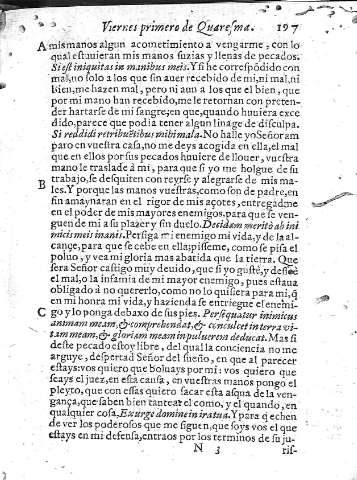 Viernes primero de Quaresma. 197
A mis manos algun acometimiento a vengarme, con lo
qual estuuieran mis manos suzias y llenas de pecados.
Si est iniquitas in manibus meis. Y si he correspõdido con
mal, no solo a los que sin auer recebido de mi, ni mal, ni
bien, me hazen mal, pero ni aun a los que el bien, que
por mi mano han recebido, me le retornan con preten-
der hartarse de mi sangre, en que, quando huuiera exce
dido, parece que podia tener algun linage de disculpa.
Si reddidi retribuẽtibus mihi mala. No halle yo Señor am
paro en vuestra casa, no me deys acogida en ella, el mal
que en ellos por sus pecados huuiere de llouer, vuestra
mano le traslade à mi, para que si yo me holgue de su
trabajo, se desquiten con reyrse y alegrarse de mis ma-
B les. Y porque las manos vuestras, como son de padre, en
fin amaynaran en el rigor de mis açotes, entregadme
en el poder de mis mayores enemigos, para que se ven-
guen de mi a su plazer y sin duelo. Decidam meritò ab ini
micis meis inanis. Persiga mi enemigo mi vida, y de la al-
cançe, para que se cebe en ella; pisseme, como se pisa el
poluo, y vea mi gloria mas abatida que la tierra. Que
sera Señor castigo muy deuido, que si yo gustè, y desseè
el mal, o la infamia de mi mayor enemigo, pues estaua
obligado à no quererlo, como no lo quisiera para mi, q̃
en mi honra mi vida, y hazienda se entriegue el enemi-
C go y lo ponga debaxo de sus pies. Persequatur inimicus
animam meam, & comprehendat, & conculcet in terra vi-
tam meam, & gloriam meam in puluerem deducat. Mas si
deste pecado estoy libre, del qual la conciencia no me
arguye, despertad Señor del sueño, en que al parecer
estays: vos quiero que boluays por mi: vos quiero que
seays el juez, en esta causa, en vuestras manos pongo el
pleyto, que con essas quiero sacar esta asqua de la ven-
gança, que saben bien tantear el como, y el quando, en
qualquier cosa, Exurge domine in ira tua. Y para q̃ echen
de ver los poderosos que me siguen, que soys vos el que
estays en mi defensa, entraos por los terminos de su ju-
N 3 ris-